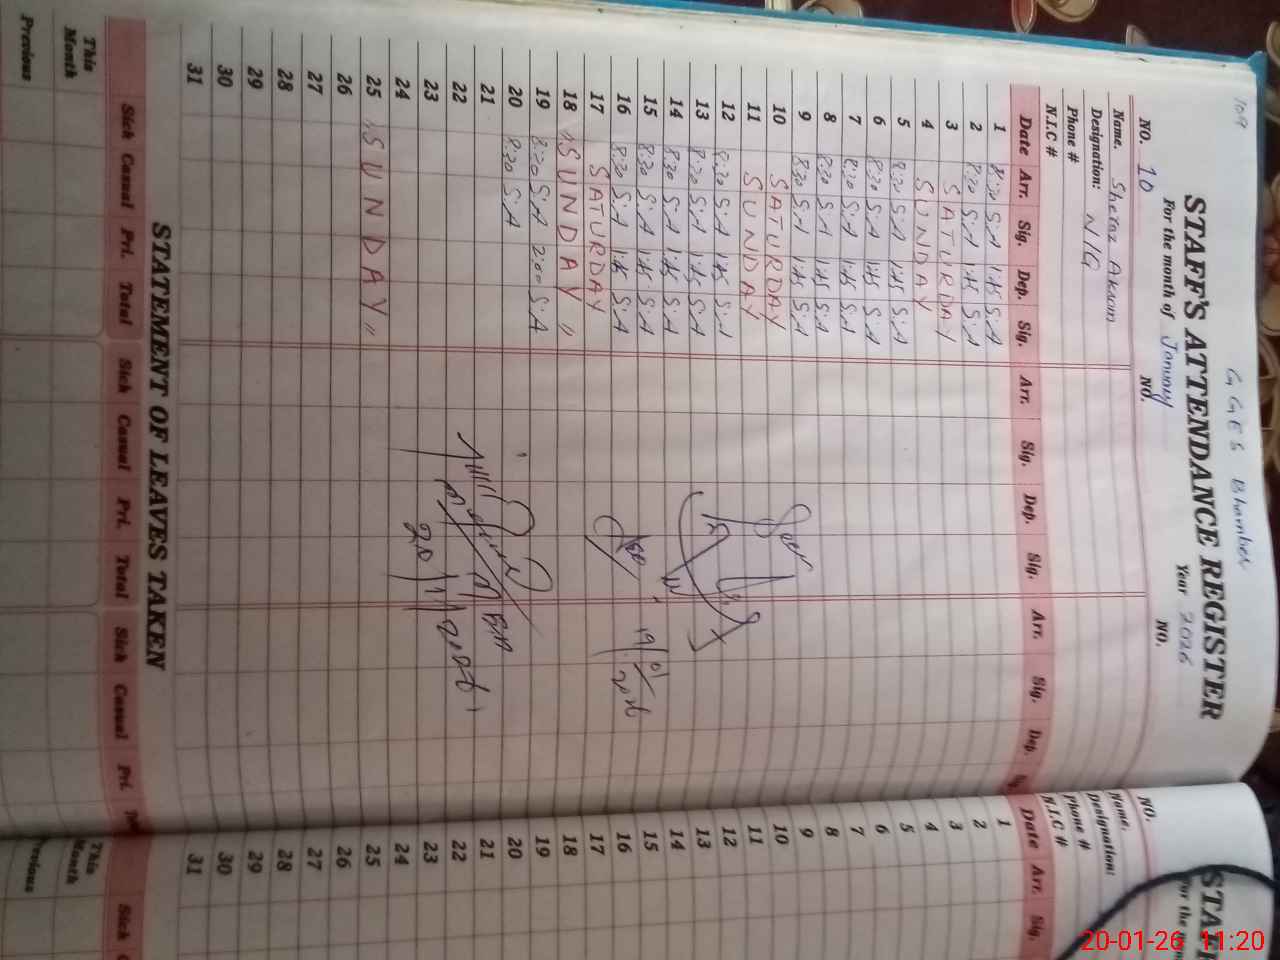 GGES Bhamber
STAFF'S ATTENDANCE REGISTER
For the month of January Year 2026
NO. 10 NO. NO.
Name. Sheraz Akram
Designation: N/Q
Phone #
N.I.C #
Date Arr. Sig. Dep. Sig. Arr. Sig. Dep. Sig. Arr. Sig. Dep.
1 8:30 S.A 1:45 S.A
2 8:30 S.A 1:45 S.A
3 SATURDAY
4 SUNDAY
5 8:30 S.A 1:45 S.A
6 8:30 S.A 1:45 S.A
7 8:30 S.A 1:45 S.A
8 8:30 S.A 1:45 S.A
9 8:30 S.A 1:45 S.A
10 SATURDAY
11 SUNDAY
12 8:30 S.A 1:45 S.A
13 8:30 S.A 1:45 S.A
14 8:30 S.A 1:45 S.A
15 8:30 S.A 1:45 S.A
16 8:30 S.A 1:45 S.A
17 SATURDAY
18 "SUNDAY"
19 8:30 S.A 2:00 S.A
20 8:30 S.A
21
22
23
24
25 "SUNDAY"
26
27
28
29
30
31
19/01/2026
20/1/2026
STATEMENT OF LEAVES TAKEN
Sick Casual Pri. Total Sick Casual Pri. Total Sick Casual Pri.
This Month
Previous
STAFF
For the
NO.
Name.
Designation:
Phone #
N.I.C #
Date Arr. Sig.
1
2
3
4
5
6
7
8
9
10
11
12
13
14
15
16
17
18
19
20
21
22
23
24
25
26
27
28
29
30
31
Sick
This Month
Previous
20-01-26 11:20